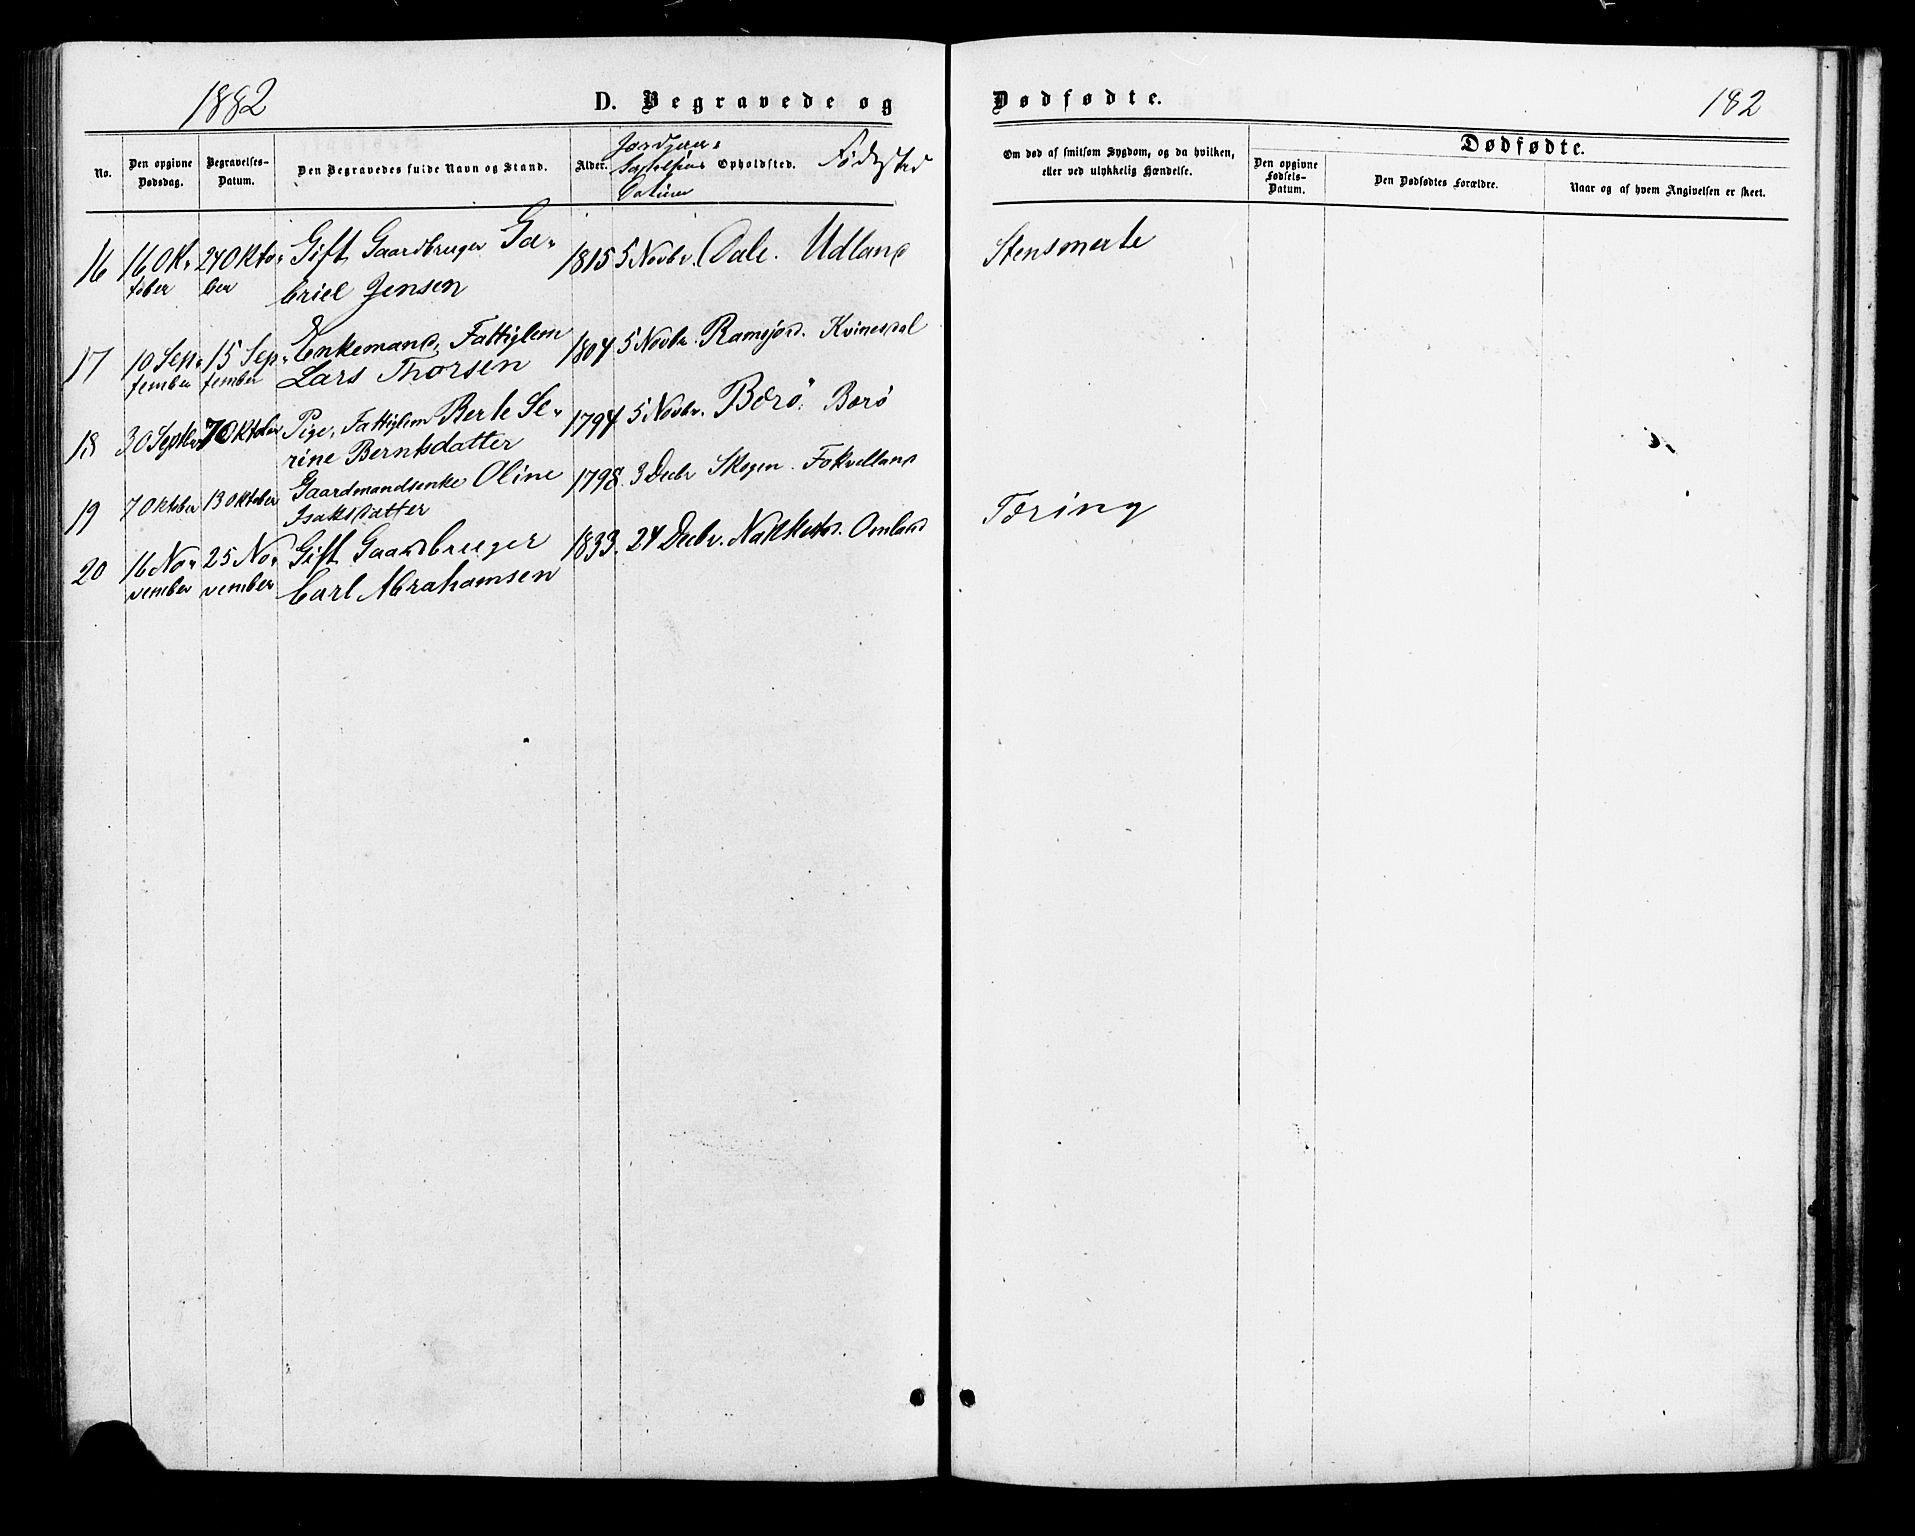 1882
D. Begravede og
Dødfødte.
182
No.
Den opgivne Dødsdag.
Begravelses-Datum.
Den Begravedes fulde Navn og Stand.
Alder.
Datum
Opholdsted.
Fødested
Om død af smitsom Sygdom, og da hvilken,
eller ved ulykkelig Hændelse.
Dødfødte.
Den opgivne Fødsels-Datum.
Den Dødfødtes Forældre.
Naar og af hvem Angivelsen er skeet.
16 16 Ok- 24 Okto- Gift Gaardbruger Ga- 1815 5 Novbr. Dale. Udland Stensmerte
tober ber briel Jensen
17 10 Sep- 15 Sep- Enkemand, Fattiglem 1804 5 Novbr. Ramsjord. Kvinesdal
tember tember Lars Thorsen
18 30 Septbr 7 Oktober Pige, Fattiglem Berte Se- 1794 5 Novbr. Borø. Borø
rine Berntsdatter
19 7 Oktober 13 Oktober Gaardmandsenke Oline 1798. 3 Decbr Skogen. Fokvelland
Isaksdatter
20 16 No- 25 No- Gift Gaardbruger 1833. 24 Decbr. Omland Tæring
vember vember Carl Abrahamsen